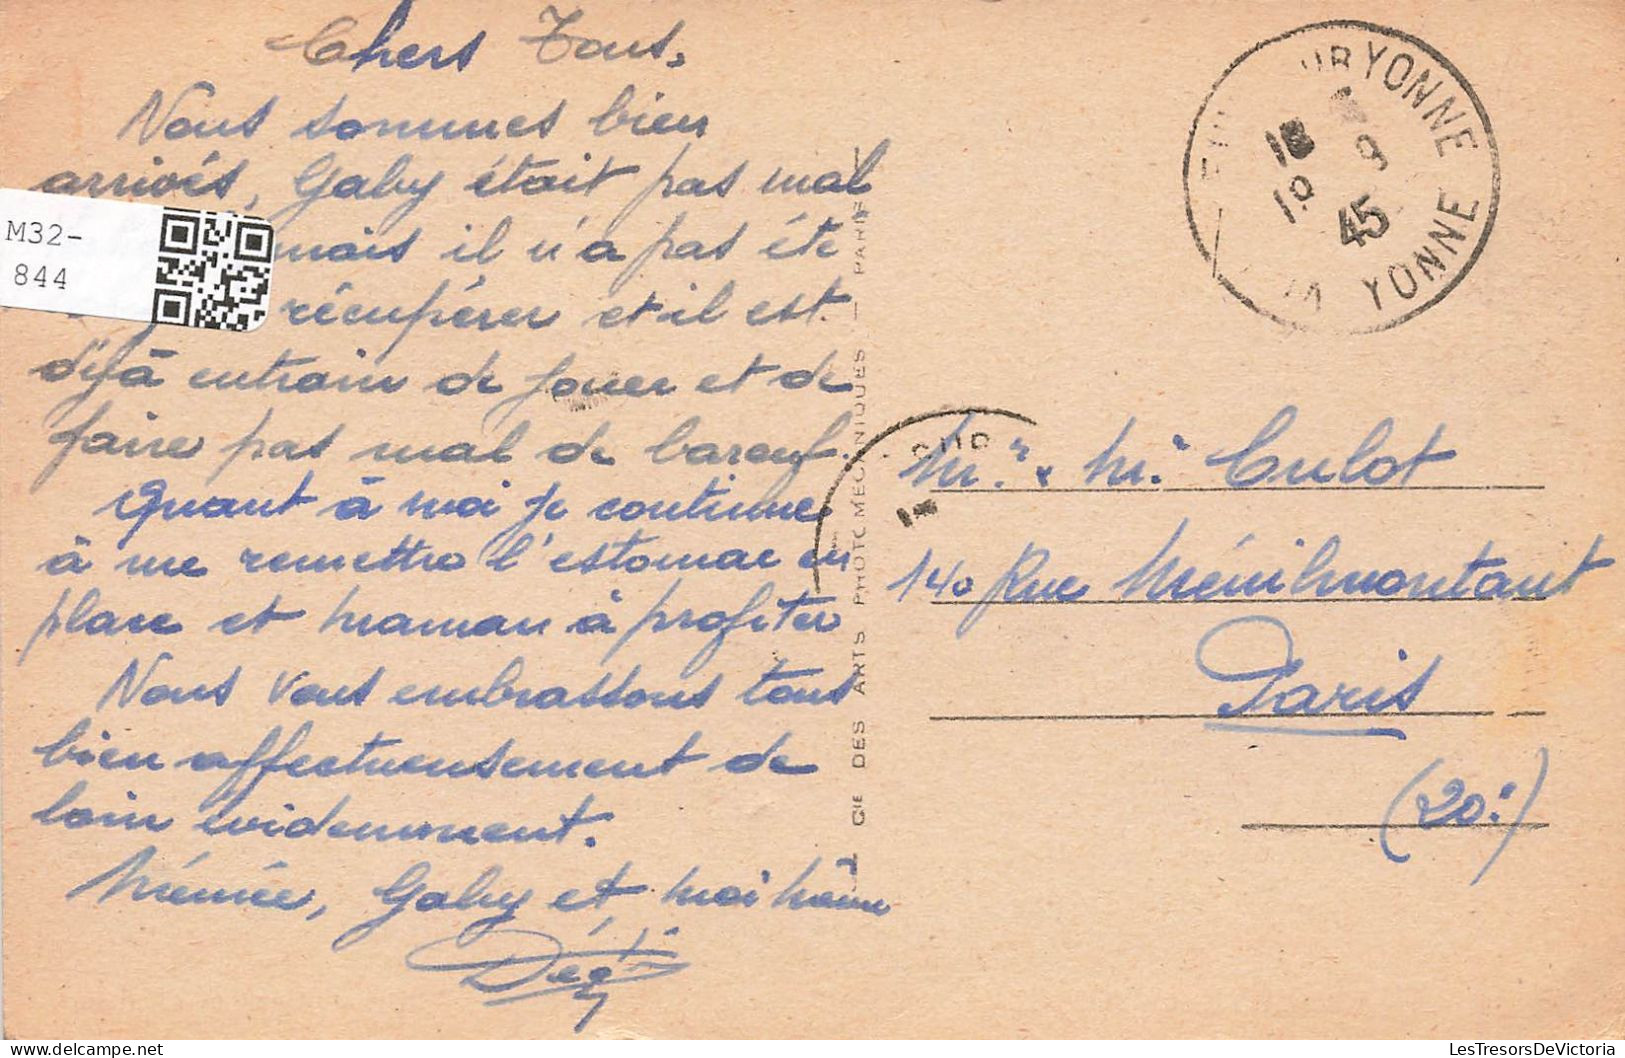 Chers Tous,
Nous sommes bien
arrivés, Gaby était pas mal
mais il n'a pas été
récupérer et il est
déjà entrain de jouer et de
faire pas mal de barouf.
Quant à moi je continue
à me remettre l'estomac en
place et maman à profiter
Nous vous embrassons tous
bien affectueusement de
loin évidemment.
Mémée, Gaby et moi même
M32-
844
CIE DES ARTS PHOTOMÉCANIQUES — PARIS
UR YONNE
18
9
19 45
YONNE
SUR
Mr. & Mr. Culot
140 Rue Ménilmontant
Paris
(20e)
LesTresorsDeVictoria